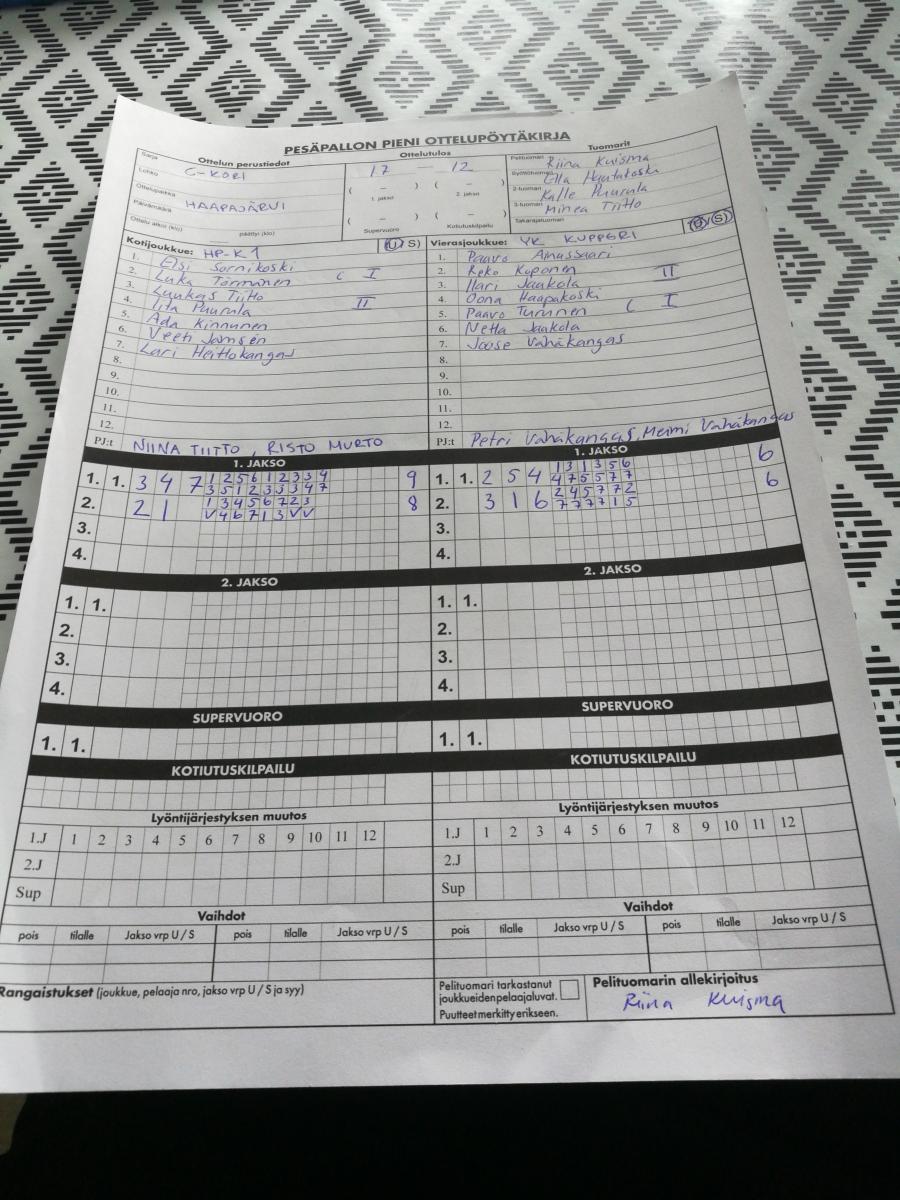 PESÄPALLON PIENI OTTELUPÖYTÄKIRJA
Ottelun perustiedot Ottelutulos Tuomarit
Sarja
Lohko
Ottelupaikka HAAPAJÄRVI
Päivämäärä
Ottelu alkoi (klo) päättyi (klo)
17 — 12
( – ) ( – )
1. jakso 2. jakso
( – ) ( – )
Supervuoro Kotiutuskilpailu
Pelituomari Riina Kuisma
Syöttötuomari Ella
2-tuomari Kalle Puurula
3-tuomari Minea Tiitto
Takarajatuomari
Kotijoukkue: HP-K1 (U S)
1. Sornikoski
2. Luka Törmänen C I
3. Luukas Tiitto
4. Iita Puurula II
5. Ada Kinnunen
6. Veeti Jämsén
7. Lari Heittokangas
8.
9.
10.
11.
12.
PJ:t NIINA TIITTO, RISTO MURTO
Vierasjoukkue: YK KUPPERI (U S)
1. Paavo Amassaari
2. Reko Koponen II
3. Ilari Jaakola
4. Oona Haapakoski
5. Paavo Turunen C I
6. Netta Jaakola
7. Joose Vähäkangas
8.
9.
10.
11.
12.
PJ:t Petri Vähäkangas, Meimi Vähäkangas
1. JAKSO
1. 1. 3 4 7 1 2 5 6 1 2 3 3 4 9
3 5 1 2 3 3 3 4 7
2. 2 1 1 3 4 5 6 7 2 3 8
V 4 6 7 1 3 V V
3.
4.
1. JAKSO
1. 1. 2 5 4 1 3 1 3 5 6 6
4 7 5 5 7 7
2. 3 1 6 2 4 5 7 7 2 6
7 7 7 7 1 5
3.
4.
2. JAKSO
1. 1.
2.
3.
4.
2. JAKSO
1. 1.
2.
3.
4.
SUPERVUORO
1. 1.
SUPERVUORO
1. 1.
KOTIUTUSKILPAILU
KOTIUTUSKILPAILU
Lyöntijärjestyksen muutos
1.J 1 2 3 4 5 6 7 8 9 10 11 12
2.J
Sup
Lyöntijärjestyksen muutos
1.J 1 2 3 4 5 6 7 8 9 10 11 12
2.J
Sup
Vaihdot
pois tilalle Jakso vrp U / S pois tilalle Jakso vrp U / S
Vaihdot
pois tilalle Jakso vrp U / S pois tilalle Jakso vrp U / S
Rangaistukset (joukkue, pelaaja nro, jakso vrp U / S ja syy)
Pelituomari tarkastanut
joukkueiden pelaajaluvat.
Puutteet merkitty erikseen.
Pelituomarin allekirjoitus
Riina Kuisma